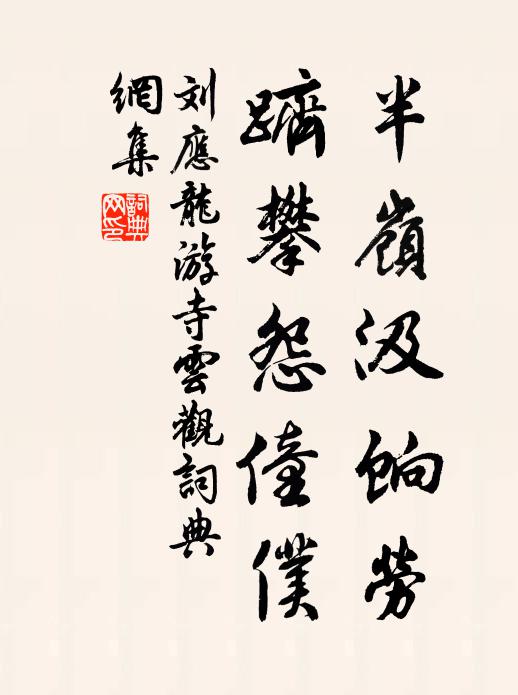 半嶺汲餉勞
躋攀怨僮僕
刘應龍游寺雲觀詞典
網集
詞典
网印